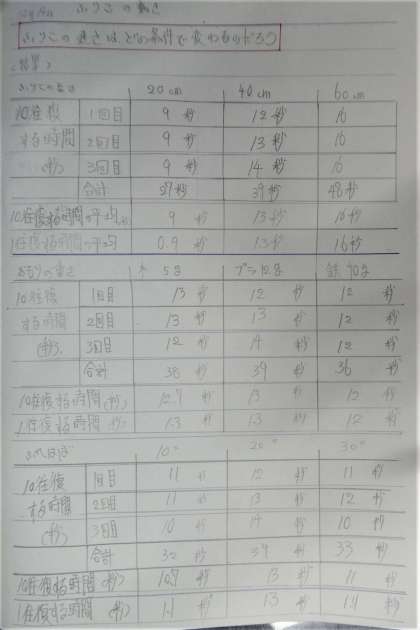 ふりこの速さ
ふりこの速さは、どの条件で変わるのだろう
(結果)
ふりこの長さ 20cm 40cm 60cm
10往復 1回目 9秒 12秒 16
する時間 2回目 9秒 13秒 16
(秒) 3回目 9秒 14秒 16
合計 27秒 39秒 48秒
10往復する時間の平均 9秒 13秒 16秒
1往復する時間の平均 0.9秒 1.3秒 1.6秒
おもりの重さ 木 5g プラ10g 鉄
10往復 1回目 13秒 12秒 12秒
する時間 2回目 13秒 13秒 12秒
(秒) 3回目 12秒 14秒 12秒
合計 38秒 39秒 36秒
10往復する時間(秒) 12.7秒 13秒 12秒
1往復する時間(秒) 1.3秒 1.3秒 12秒
ふれはば 10° 20° 30°
10往復 1回目 11秒 12秒 11秒
する時間 2回目 11秒 13秒 12秒
(秒) 3回目 10秒 14秒 10秒
合計 32秒 39秒 33秒
10往復する時間(秒) 10.7秒 13秒 11秒
1往復する時間(秒) 1.1秒 1.3秒 1.1秒